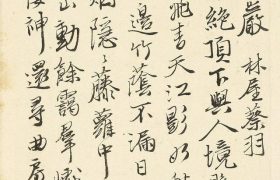 巖 林屋蔡羽
絕頂下與人境
飛青天江影
邊竹蔭不漏日
烟隱〻藤蘿中
出動餘靄羣峨
神還尋曲